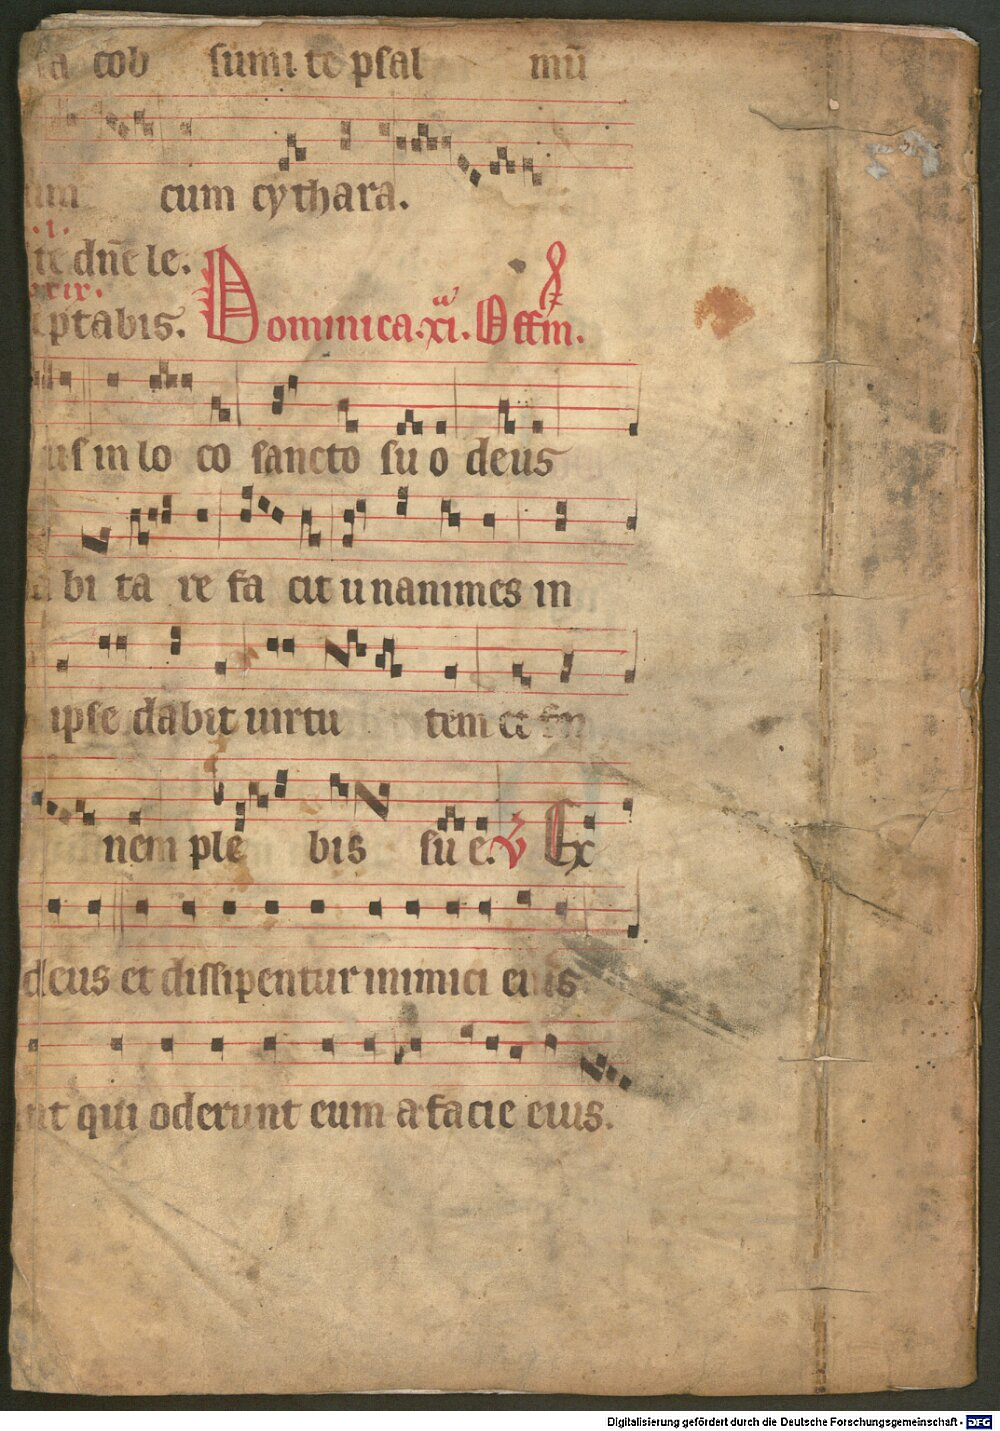 cob sumi te psal mū
cum cythara.
.i.
te dn̄e le.
xix.
ptabis. Dominica .xi. Offm̄.
us in lo co sancto su o deus
bi ta re fa cit unanimes in
ipse dabit uirtu tem et for
nem ple bis su e. V̄ Ex
deus et dissipentur inimici eius
nt qui oderunt eum a facie eius.
Digitalisierung gefördert durch die Deutsche Forschungsgemeinschaft - DFG